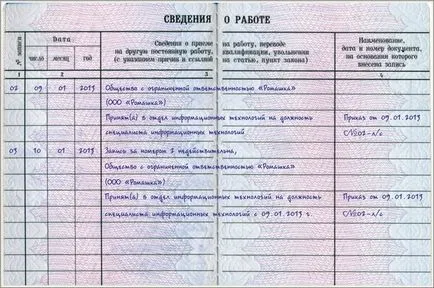 СВЕДЕНИЯ О РАБОТЕ
№ записи
Дата
число месяц год
Сведения о приеме на работу, переводе
на другую постоянную работу, квалификации, увольнении
(с указанием причин и ссылкой на статью, пункт закона)
Наименование,
дата и номер документа,
на основании которого
внесена запись
1 2 3 4
02 09 01 2013 Общество с ограниченной ответственностью «Ромашка»
(ООО «Ромашка»)
Принят(а) в отдел информационных технологий на должность Приказ от 09.01.2013
специалиста информационных технологий №02-л/с
03 10 01 2013 Запись за номером 2 недействительна,
Общество с ограниченной ответственностью «Ромашка»
(ООО «Ромашка»)
Принят(а) в отдел информационных технологий на должность Приказ от 09.01.2013
специалиста информационных технологий с 09.01.2013 г. №02-л/с